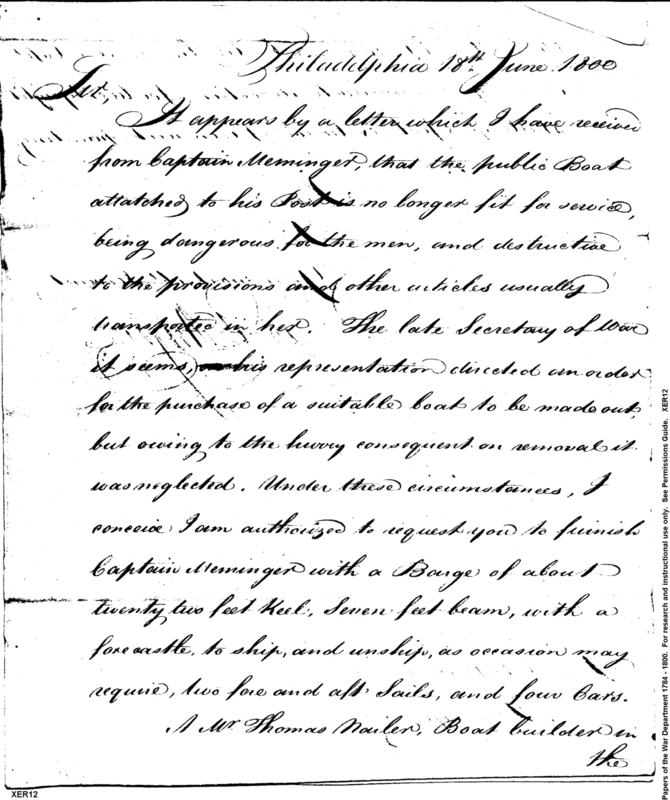 Philadelphia 18th June 1800
Sir,
It appears by a letter which I have received
from Captain Meminger, that the public Boat
attatched to his Post is no longer fit for service,
being dangerous for the men, and destructive
to the provisions and other articles usually
transported in her. The late Secretary of War
it seems, on his representation directed an order
for the purchase of a suitable boat to be made out,
but owing to the hurry consequent on removal it
was neglected. Under these circumstances, I
conceive I am authorized to request you to furnish
Captain Meminger with a Barge of about
twenty two feet Keel, Seven feet beam, with a
forecastle, to ship, and unship, as occasion may
require, two fore and aft Sails, and four Oars.
A Mr. Thomas Nailer, Boat builder in
the
XER12
Papers of the War Department 1784 - 1800. For research and instructional use only. See Permissions Guide. XER12